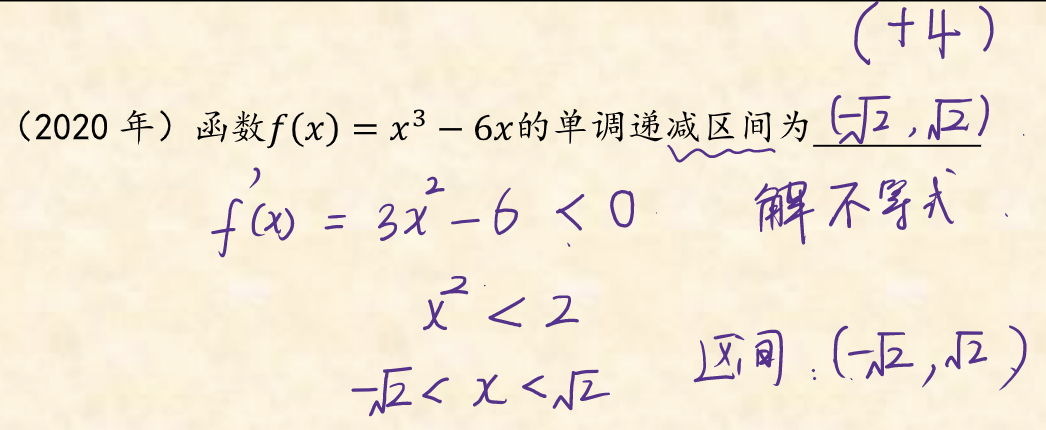 (+4)
（2020 年）函数f(x) = x³ − 6x的单调递减区间为 (-√2 , √2)
f'(x) = 3x² - 6 < 0 解不等式
x² < 2
-√2 < x < √2 区间 : (-√2 , √2)